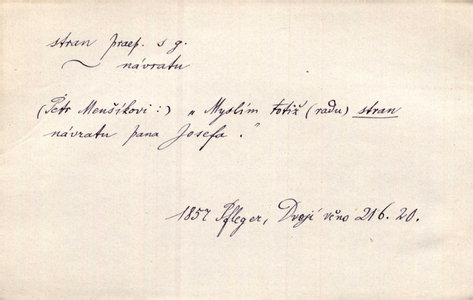 stran praep. s g.
~ návratu
(Petr Menšíkovi:) „Myslím totiž (radu) stran
návratu pana Josefa."
1857 Pfleger, Dvojí věno 216.20.